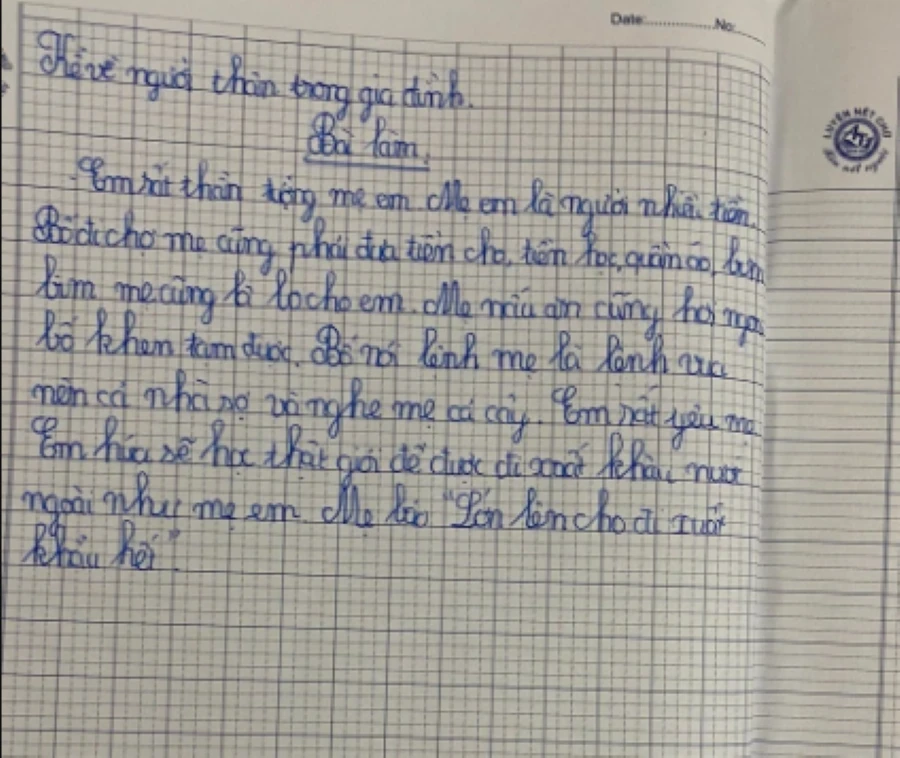 Date:............No:
Kể về người thân trong gia đình.
Bài làm.
Em rất thần tượng mẹ em. Mẹ em là người nhiều tiền.
Bố đi chợ mẹ cũng phải đưa tiền cho, tiền học, quần áo, bim
bim mẹ cũng lo cho em. Mẹ nấu ăn cũng hơi ngon
bố khen tạm được. Bố nói lệnh mẹ là lệnh vua
nên cả nhà sợ và nghe mẹ cả. Em rất yêu mẹ
Em hứa sẽ học thật giỏi để được đi xuất khẩu nước
ngoài như mẹ em. Mẹ bảo "Lớn lên cho đi xuất
khẩu hết".
LUYỆN NÉT CHỮ